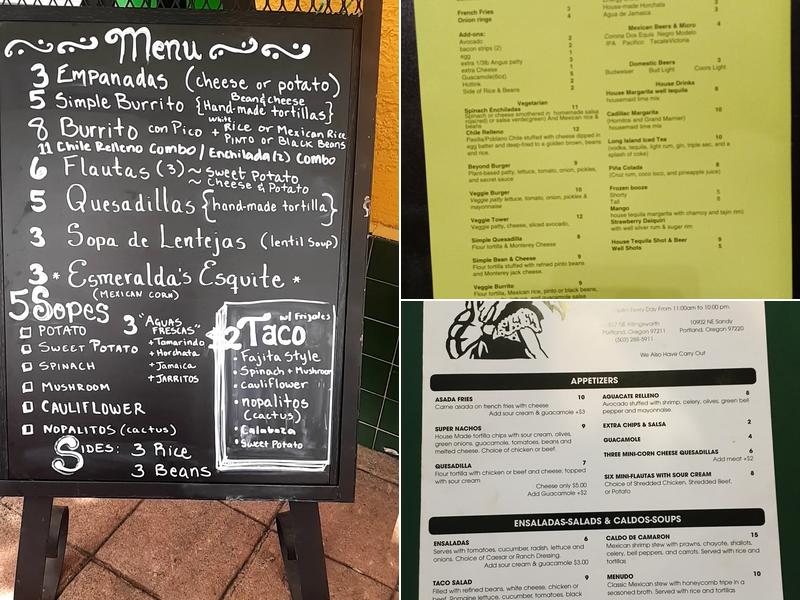 Menu
3 Empanadas (cheese or potato)
5 Simple Burrito {Bean & cheese
Hand-made tortillas}
8 Burrito con Pico + white Rice or Mexican Rice
+ Pinto or Black Beans
11 Chile Relleno Combo / Enchilada (2) Combo
6 Flautas (3) ~ Sweet Potato
~ Cheese & Potato
5 Quesadillas {hand-made tortilla}
3 Sopa de Lentejas (lentil soup)
3 * Esmeralda's Esquite *
(Mexican corn)
5 Sopes
Potato
Sweet Potato
Spinach
Mushroom
Cauliflower
Nopalitos (cactus)
3 "Aguas
Frescas"
+ Tamarindo
+ Horchata
+ Jamaica
+ Jarritos
w/ Frijoles
2 Taco
Fajita Style
Spinach + Mushroom
cauliflower
nopalitos
(cactus)
Calabaza
Sweet Potato
Sides: 3 Rice
3 Beans
French Fries 3
Onion rings 4
Add-ons:
Avocado 2
bacon strips (2) 2
egg 1
extra 1/3lb Angus patty 3
extra Cheese 1
Guacamole(6oz) 5
Hotlink 2
Side of Rice & Beans 2
Vegetarian
Spinach Enchiladas 11
Spinach or cheese smothered in homemade salsa
roasted) or salsa verde(green) And Mexican rice &
beans
Chile Relleno 12
Pasilla/Poblano Chile stuffed with cheese dipped in
egg batter and deep-fried to a golden brown, beans
and rice.
Beyond Burger 9
Plant-based patty, lettuce, tomato, onion, pickles,
and secret sauce
Veggie Burger 10
Veggie patty lettuce, tomato, onion, pickles &
mayonnaise
Veggie Tower 12
Veggie patty, cheese, sliced avocado,
Simple Quesadilla 8
Flour tortilla & Monterey Cheese
Simple Bean & Cheese 9
Flour tortilla stuffed with refined pinto beans
and Monterey jack cheese.
Veggie Burrito 9
Flour tortilla, Mexican rice, pinto or black beans,
House-made Horchata 3
Agua de Jamaica 3
Mexican Beers & Micro 4
Corona Dos Equis Negro Modelo
IPA Pacifico Tecate Victoria
Domestic Beers 3
Budweiser Bud Light Coors Light
House Drinks
House Margarita well tequila 8
housemaid lime mix
Cadillac Margarita 10
(Hornitos and Grand Marnier)
housemaid lime mix
Long Island Iced Tea 10
(vodka, tequila, light rum, gin, triple sec, and a
splash of coke)
Piña Colada 8
(Cruz rum, coco loco, and pineapple juice)
Frozen booze
Shorty 5
Tall 8
Mango
house tequila margarita with chamoy and tajin rim)
Strawberry Daiquiri
with well silver rum & sugar rim
House Tequila Shot & Beer 9
Well Shots 5
Open Every Day From 11:00am to 10:00 pm.
NE Killingsworth
Portland, Oregon 97211
(503) 288-5911
10902 NE Sandy
Portland, Oregon 97220
We Also Have Carry Out
APPETIZERS
ASADA FRIES 10
Carne asada on french fries with cheese
Add sour cream & guacamole +$3
SUPER NACHOS 9
House Made tortilla chips with sour cream, olives,
green onions, guacamole, tomatoes, beans and
melted cheese. Choice of chicken or beef.
QUESADILLA 7
Flour tortilla with chicken or beef and cheese; topped
with sour cream
Cheese only $5.00
Add Guacamole +$2
AGUACATE RELLENO 8
Avocado stuffed with shrimp, celery, olives, green bell
pepper and mayonnaise.
EXTRA CHIPS & SALSA 2
GUACAMOLE 4
THREE MINI-CORN CHEESE QUESADILLAS 6
Add meat +$2
SIX MINI-FLAUTAS WITH SOUR CREAM 8
Choice of Shredded Chicken, Shredded Beef,
or Potato
ENSALADAS-SALADS & CALDOS-SOUPS
ENSALADAS 6
Serves with tomatoes, cucumber, radish, lettuce and
onions. Choice of Caesar or Ranch Dressing.
Add sour cream & guacamole $3.00
TACO SALAD 9
Filled with refined beans, white cheese, chicken or
beef. Romaine lettuce, cucumber, tomatoes, black
CALDO DE CAMARON 15
Mexican shrimp stew with prawns, chayote, shallots,
celery, bell peppers, and carrots. Served with rice and
tortillas
MENUDO 10
Classic Mexican stew with honeycomb tripe in a
seasoned broth. Served with rice and tortillas